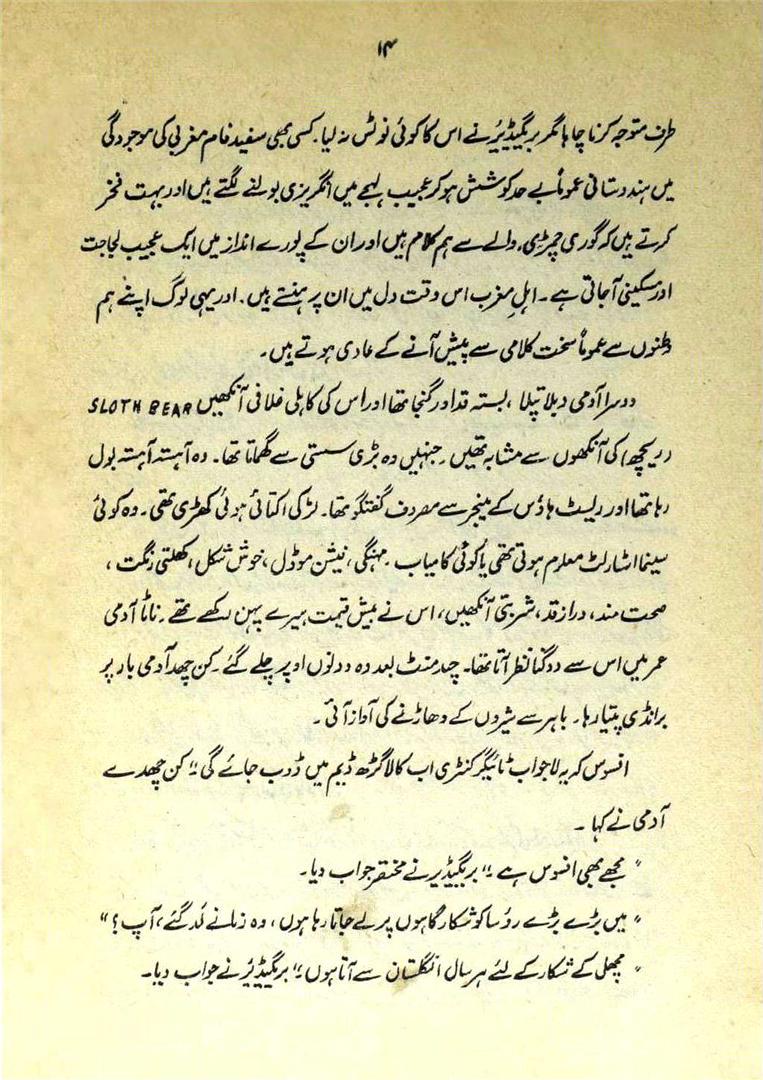 ۱۴
طرف متوجہ کرنا چاہا مگر بریگیڈیر نے اس کا کوئی نوٹس نہ لیا۔ کسی بھی سفید فام مغربی کی موجودگی
میں ہندوستانی عموماً بے حد کوشش ہو کر عجیب لہجے میں انگریزی بولنے لگتے ہیں اور بہت فخر
کرتے ہیں کہ گوری چمڑی والے سے ہم کلام ہیں اور ان کے پورے انداز میں ایک عجیب لجاجت
اور مسکینی آ جاتی ہے۔ اہلِ مغرب اس وقت دل میں ان پر ہنستے ہیں۔ اور یہی لوگ اپنے ہم
وطنوں سے عموماً سخت کلامی سے پیش آنے کے عادی ہوتے ہیں۔
دوسرا آدمی دبلا پتلا، پستہ قد اور گنجا تھا اور اس کی کاہلی غلافی آنکھیں SLOTH BEAR
(ریچھ) کی آنکھوں سے مشابہ تھیں۔ جنہیں وہ بڑی سستی سے گھماتا تھا۔ وہ آہستہ آہستہ بول
رہا تھا اور ریسٹ ہاؤس کے مینجر سے مصروف گفتگو تھا۔ لڑکی اکتائی ہوئی کھڑی تھی۔ وہ کوئی
سینما اسٹارلٹ معلوم ہوتی تھی یا کوئی کامیاب، مہنگی، فیشن موڈل، خوش شکل، کھلتی رنگت،
صحت مند، دراز قد، شربتی آنکھیں، اس نے بیش قیمت ہیرے پہن رکھے تھے۔ ناٹا آدمی
عمر میں اس سے دوگنا نظر آتا تھا۔ چند منٹ بعد وہ دونوں اوپر چلے گئے۔ کن چھدا آدمی بار پر
برانڈی پیتا رہا۔ باہر سے شیروں کے دھاڑنے کی آواز آئی۔
افسوس کہ یہ لاجواب ٹائیگر کنٹری اب کالا گڑھ ڈیم میں ڈوب جائے گی" کن چھدے
آدمی نے کہا۔
"مجھے بھی افسوس ہے" بریگیڈیر نے مختصر جواب دیا۔
"میں بڑے بڑے رؤسا کو شکار گاہوں پر لے جاتا رہا ہوں، وہ زمانے لد گئے، آپ؟"
"مچھلی کے شکار کے لئے ہر سال انگلستان سے آتا ہوں" بریگیڈیر نے جواب دیا۔